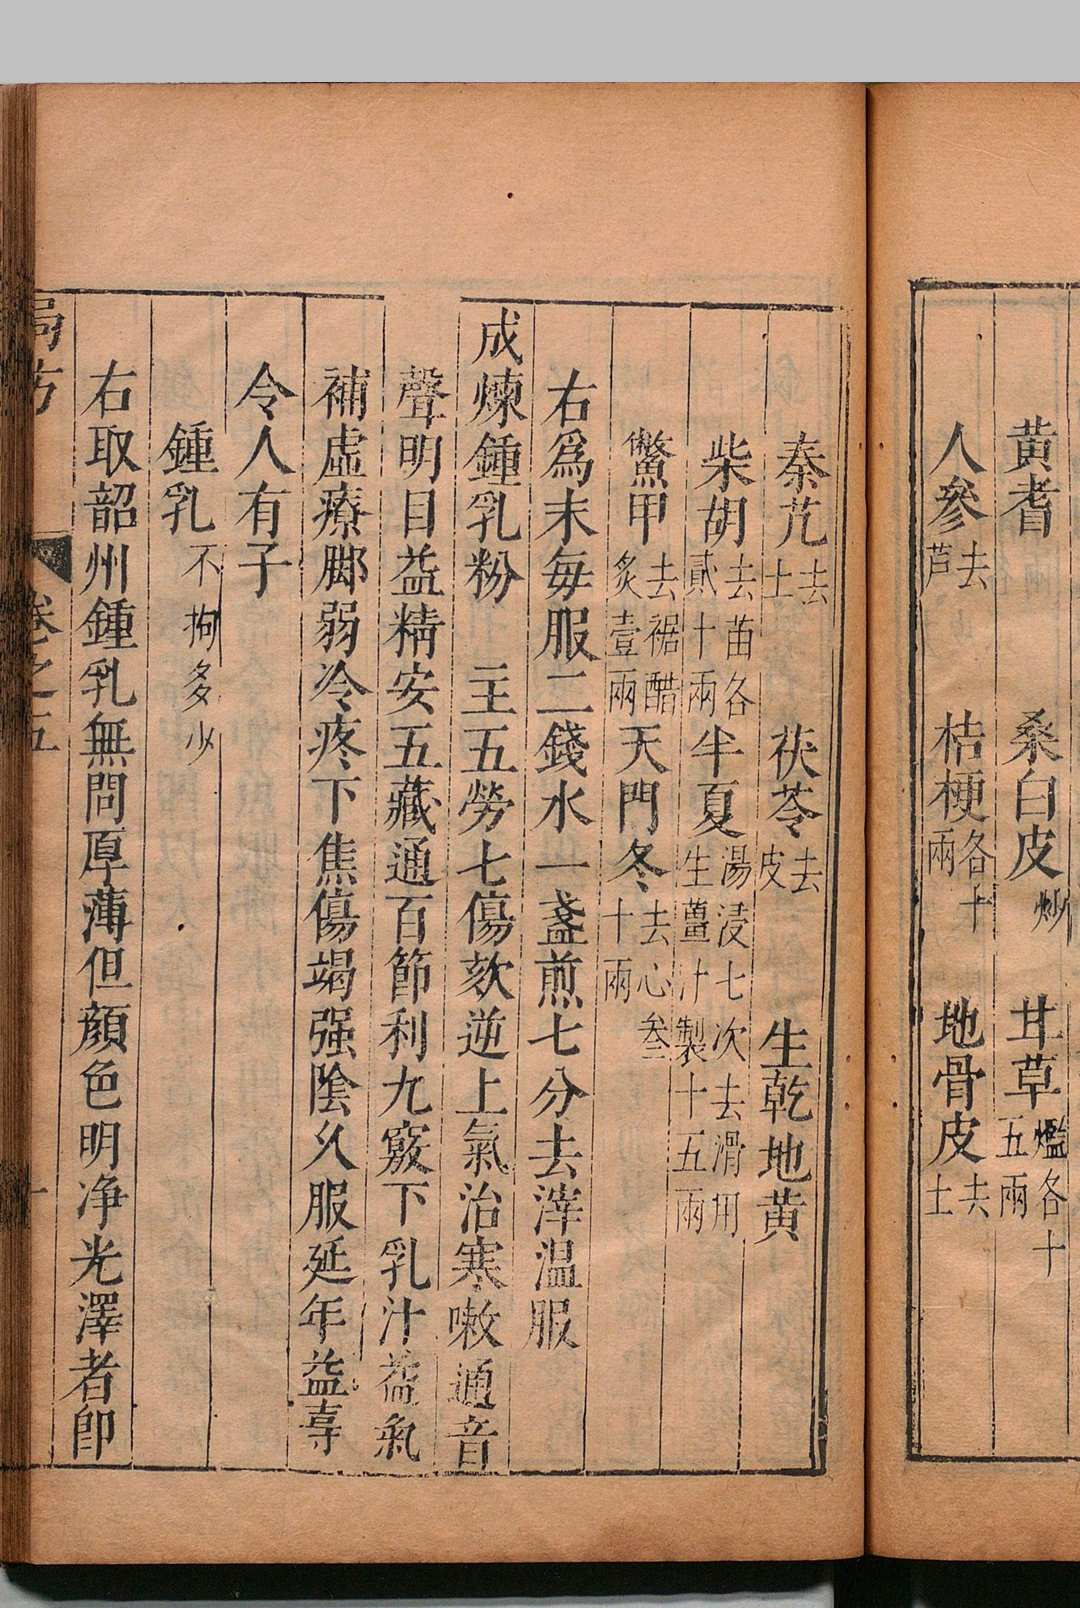 黄耆　桑白皮炒　甘草爁各十五兩
人參去芦　桔梗各十兩　地骨皮去土
秦艽去土　茯苓去皮　生乾地黄
柴胡去苗各貳十兩　半夏湯浸七次去滑用生薑汁製十五兩
鱉甲去裾酷炙壹兩　天門冬去心叁十兩
右爲末每服二錢水一盞煎七分去滓温服
成煉鍾乳粉　主五勞七傷欬逆上氣治寒嗽通音
聲明目益精安五藏通百節利九竅下乳汁益氣
補虛療脚弱冷疼下焦傷竭强陰久服延年益壽
令人有子
鍾乳不拘多少
右取韶州鍾乳無問厚薄但顏色明净光澤者卽
局方　卷之五